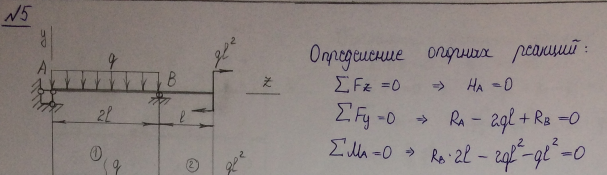 №5
y
A
q
B
ql²
z
2l
l
①
q
②
ql²
Определение опорных реакций:
∑Fz = 0 ⇒ HA = 0
∑Fy = 0 ⇒ RA − 2ql + RB = 0
∑MA = 0 ⇒ RB·2l − 2ql² − ql² = 0